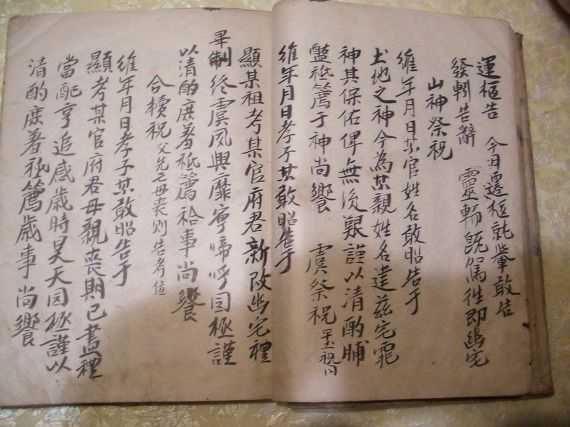 運柩告 今日遷柩就轝敢告
發靷告辭 靈輀旣駕往即幽宅
山神祭祝
維年月日某官姓名敢昭告于
土地之神今為某親姓名建玆宅
神其保佑俾無後艱謹以清酌脯
祗薦于神尚饗 虞祭祝
維年月日孝子某敢昭告于
顯某祖考某官府君新改幽宅禮
畢 終虞夙興靡寧啼呼罔極謹
以清酌庶羞祗薦祫事尚饗
合櫝祝 父先亡母喪則告考位
維年月日孝子某敢昭告于
顯考某官府君母親喪期已盡禮
當配享追感歲時昊天罔極謹以
清酌庶羞祗薦歲事尚饗